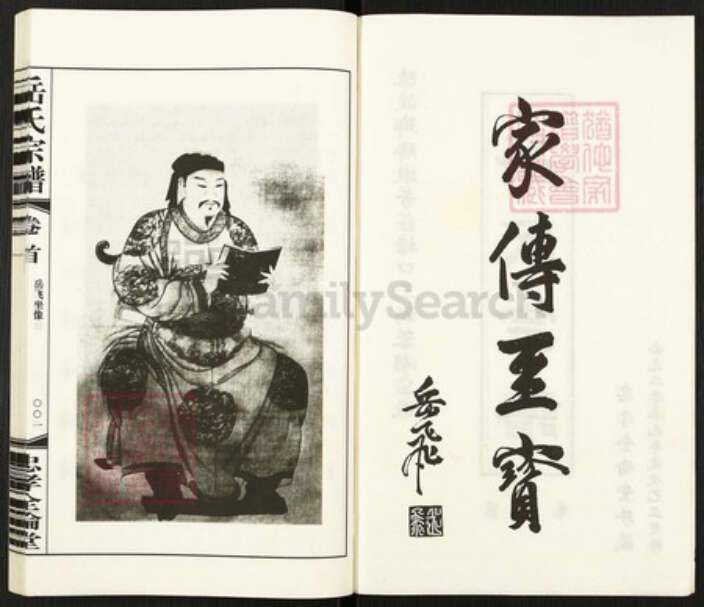 家傳至寶
岳飛
岳飛
岳氏宗譜
卷首
岳飞坐像
〇〇一
忠孝全倫堂
FamilySearch